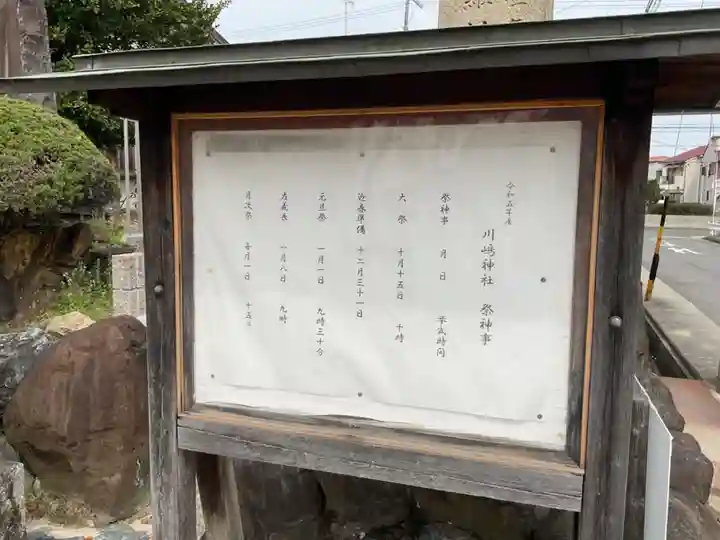 令和五年度
川嶋神社 祭神事
祭神事 月日 挙式時間
大祭 十月十五日 十時
迎春準備 十二月三十一日
元旦祭 一月一日 九時三十分
左義長 一月八日 九時
月次祭 毎月一日 十五日